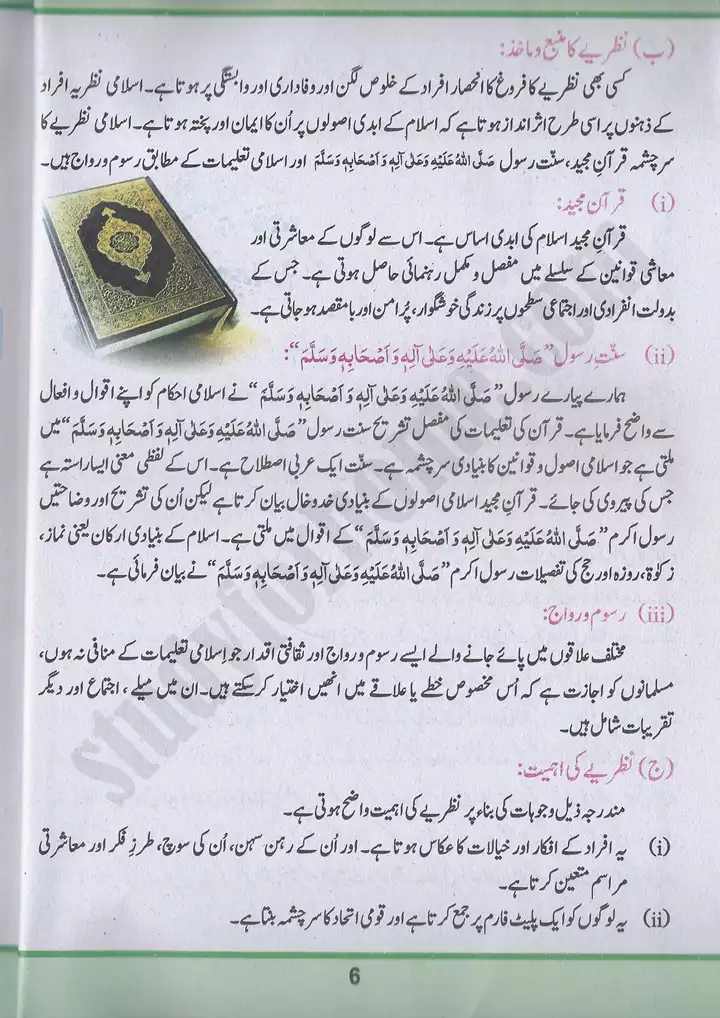 (ب) نظریے کا منبع و ماخذ:
کسی بھی نظریے کا فروغ کا انحصار افراد کے خلوص لگن اور وفاداری اور وابستگی پر ہوتا ہے۔ اسلامی نظریہ افراد
کے ذہنوں پر اسی طرح اثر انداز ہوتا ہے کہ اسلام کے ابدی اصولوں پر اُن کا ایمان اور پختہ ہوتا ہے۔ اسلامی نظریے کا
سرچشمہ قرآنِ مجید، سنّت رسول صَلَّی اللہُ عَلَیْہِ وَعَلٰی آلِہٖ وَ اَصْحَابِہٖ وَسَلَّمَ اور اسلامی تعلیمات کے مطابق رسوم و رواج ہیں۔
(i) قرآنِ مجید:
قرآنِ مجید اسلام کی ابدی اساس ہے۔ اس سے لوگوں کے معاشرتی اور
معاشی قوانین کے سلسلے میں مفصل و مکمل رہنمائی حاصل ہوتی ہے۔ جس کے
بدولت انفرادی اور اجتماعی سطحوں پر زندگی خوشگوار، پُر امن اور با مقصد ہو جاتی ہے۔
(ii) سنّتِ رسول ”صَلَّی اللہُ عَلَیْہِ وَعَلٰی آلِہٖ وَ اَصْحَابِہٖ وَسَلَّمَ“:
ہمارے پیارے رسول ”صَلَّی اللہُ عَلَیْہِ وَعَلٰی آلِہٖ وَ اَصْحَابِہٖ وَسَلَّمَ“ نے اسلامی احکام کو اپنے اقوال و افعال
سے واضح فرمایا ہے۔ قرآن کی تعلیمات کی مفصل تشریح سنت رسول ”صَلَّی اللہُ عَلَیْہِ وَعَلٰی آلِہٖ وَ اَصْحَابِہٖ وَسَلَّمَ“ میں
ملتی ہے جو اسلامی اصول و قوانین کا بنیادی سرچشمہ ہے۔ سنّت ایک عربی اصطلاح ہے۔ اس کے لفظی معنی ایسا راستہ ہے
جس کی پیروی کی جائے۔ قرآنِ مجید اسلامی اصولوں کے بنیادی خدوخال بیان کرتا ہے لیکن اُن کی تشریح اور وضاحتیں
رسول اکرم ”صَلَّی اللہُ عَلَیْہِ وَعَلٰی آلِہٖ وَ اَصْحَابِہٖ وَسَلَّمَ“ کے اقوال میں ملتی ہے۔ اسلام کے بنیادی ارکان یعنی نماز،
زکوٰۃ، روزہ اور حج کی تفصیلات رسول اکرم ”صَلَّی اللہُ عَلَیْہِ وَعَلٰی آلِہٖ وَ اَصْحَابِہٖ وَسَلَّمَ“ نے بیان فرمائی ہے۔
(iii) رسوم و رواج:
مختلف علاقوں میں پائے جانے والے ایسے رسوم و رواج اور ثقافتی اقدار جو اسلامی تعلیمات کے منافی نہ ہوں،
مسلمانوں کو اجازت ہے کہ اُس مخصوص خطے یا علاقے میں انھیں اختیار کر سکتے ہیں۔ ان میں میلے، اجتماع اور دیگر
تقریبات شامل ہیں۔
(ج) نظریے کی اہمیت:
مندرجہ ذیل وجوہات کی بناء پر نظریے کی اہمیت واضح ہوتی ہے۔
(i) یہ افراد کے افکار اور خیالات کا عکاس ہوتا ہے۔ اور اُن کے رہن سہن، اُن کی سوچ، طرزِ فکر اور معاشرتی
مراسم متعین کرتا ہے۔
(ii) یہ لوگوں کو ایک پلیٹ فارم پر جمع کرتا ہے اور قومی اتحاد کا سرچشمہ بنتا ہے۔
6